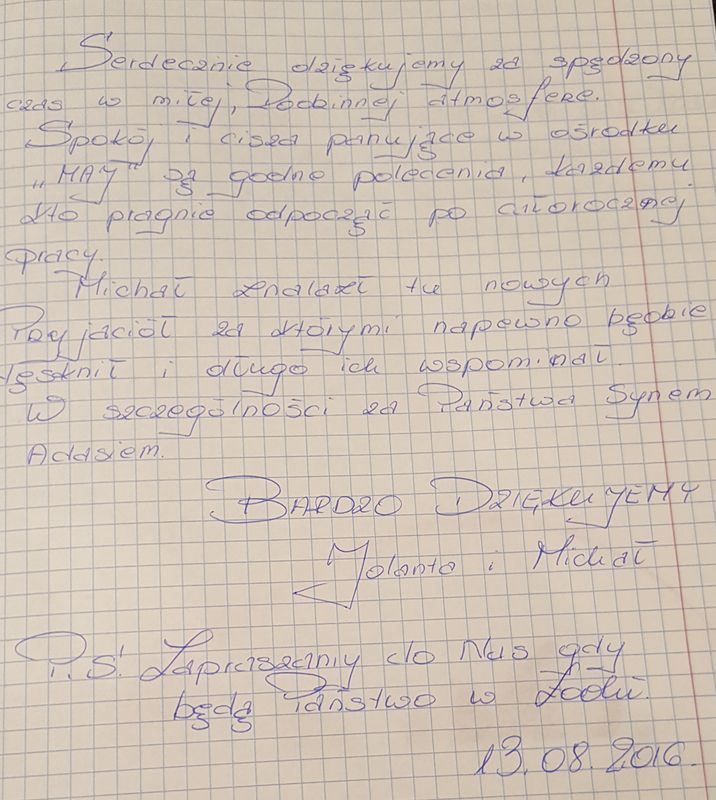 Serdecznie dziękujemy za spędzony
czas w miłej, Rodzinnej atmosferze.
Spokój i cisza panujące w ośrodku
„MAY" są godne polecenia, każdemu
kto pragnie odpocząć po całorocznej
pracy.
Michał znalazł tu nowych
Przyjaciół za którymi napewno będzie
tęsknił i długo ich wspominał.
W szczególności za Państwa Synem
Adasiem.
BARDZO DZIĘKUJEMY
Jolanta i Michał
P.S. Zapraszamy do Nas gdy
będą Państwo w Łodzi.
13.08.2016.